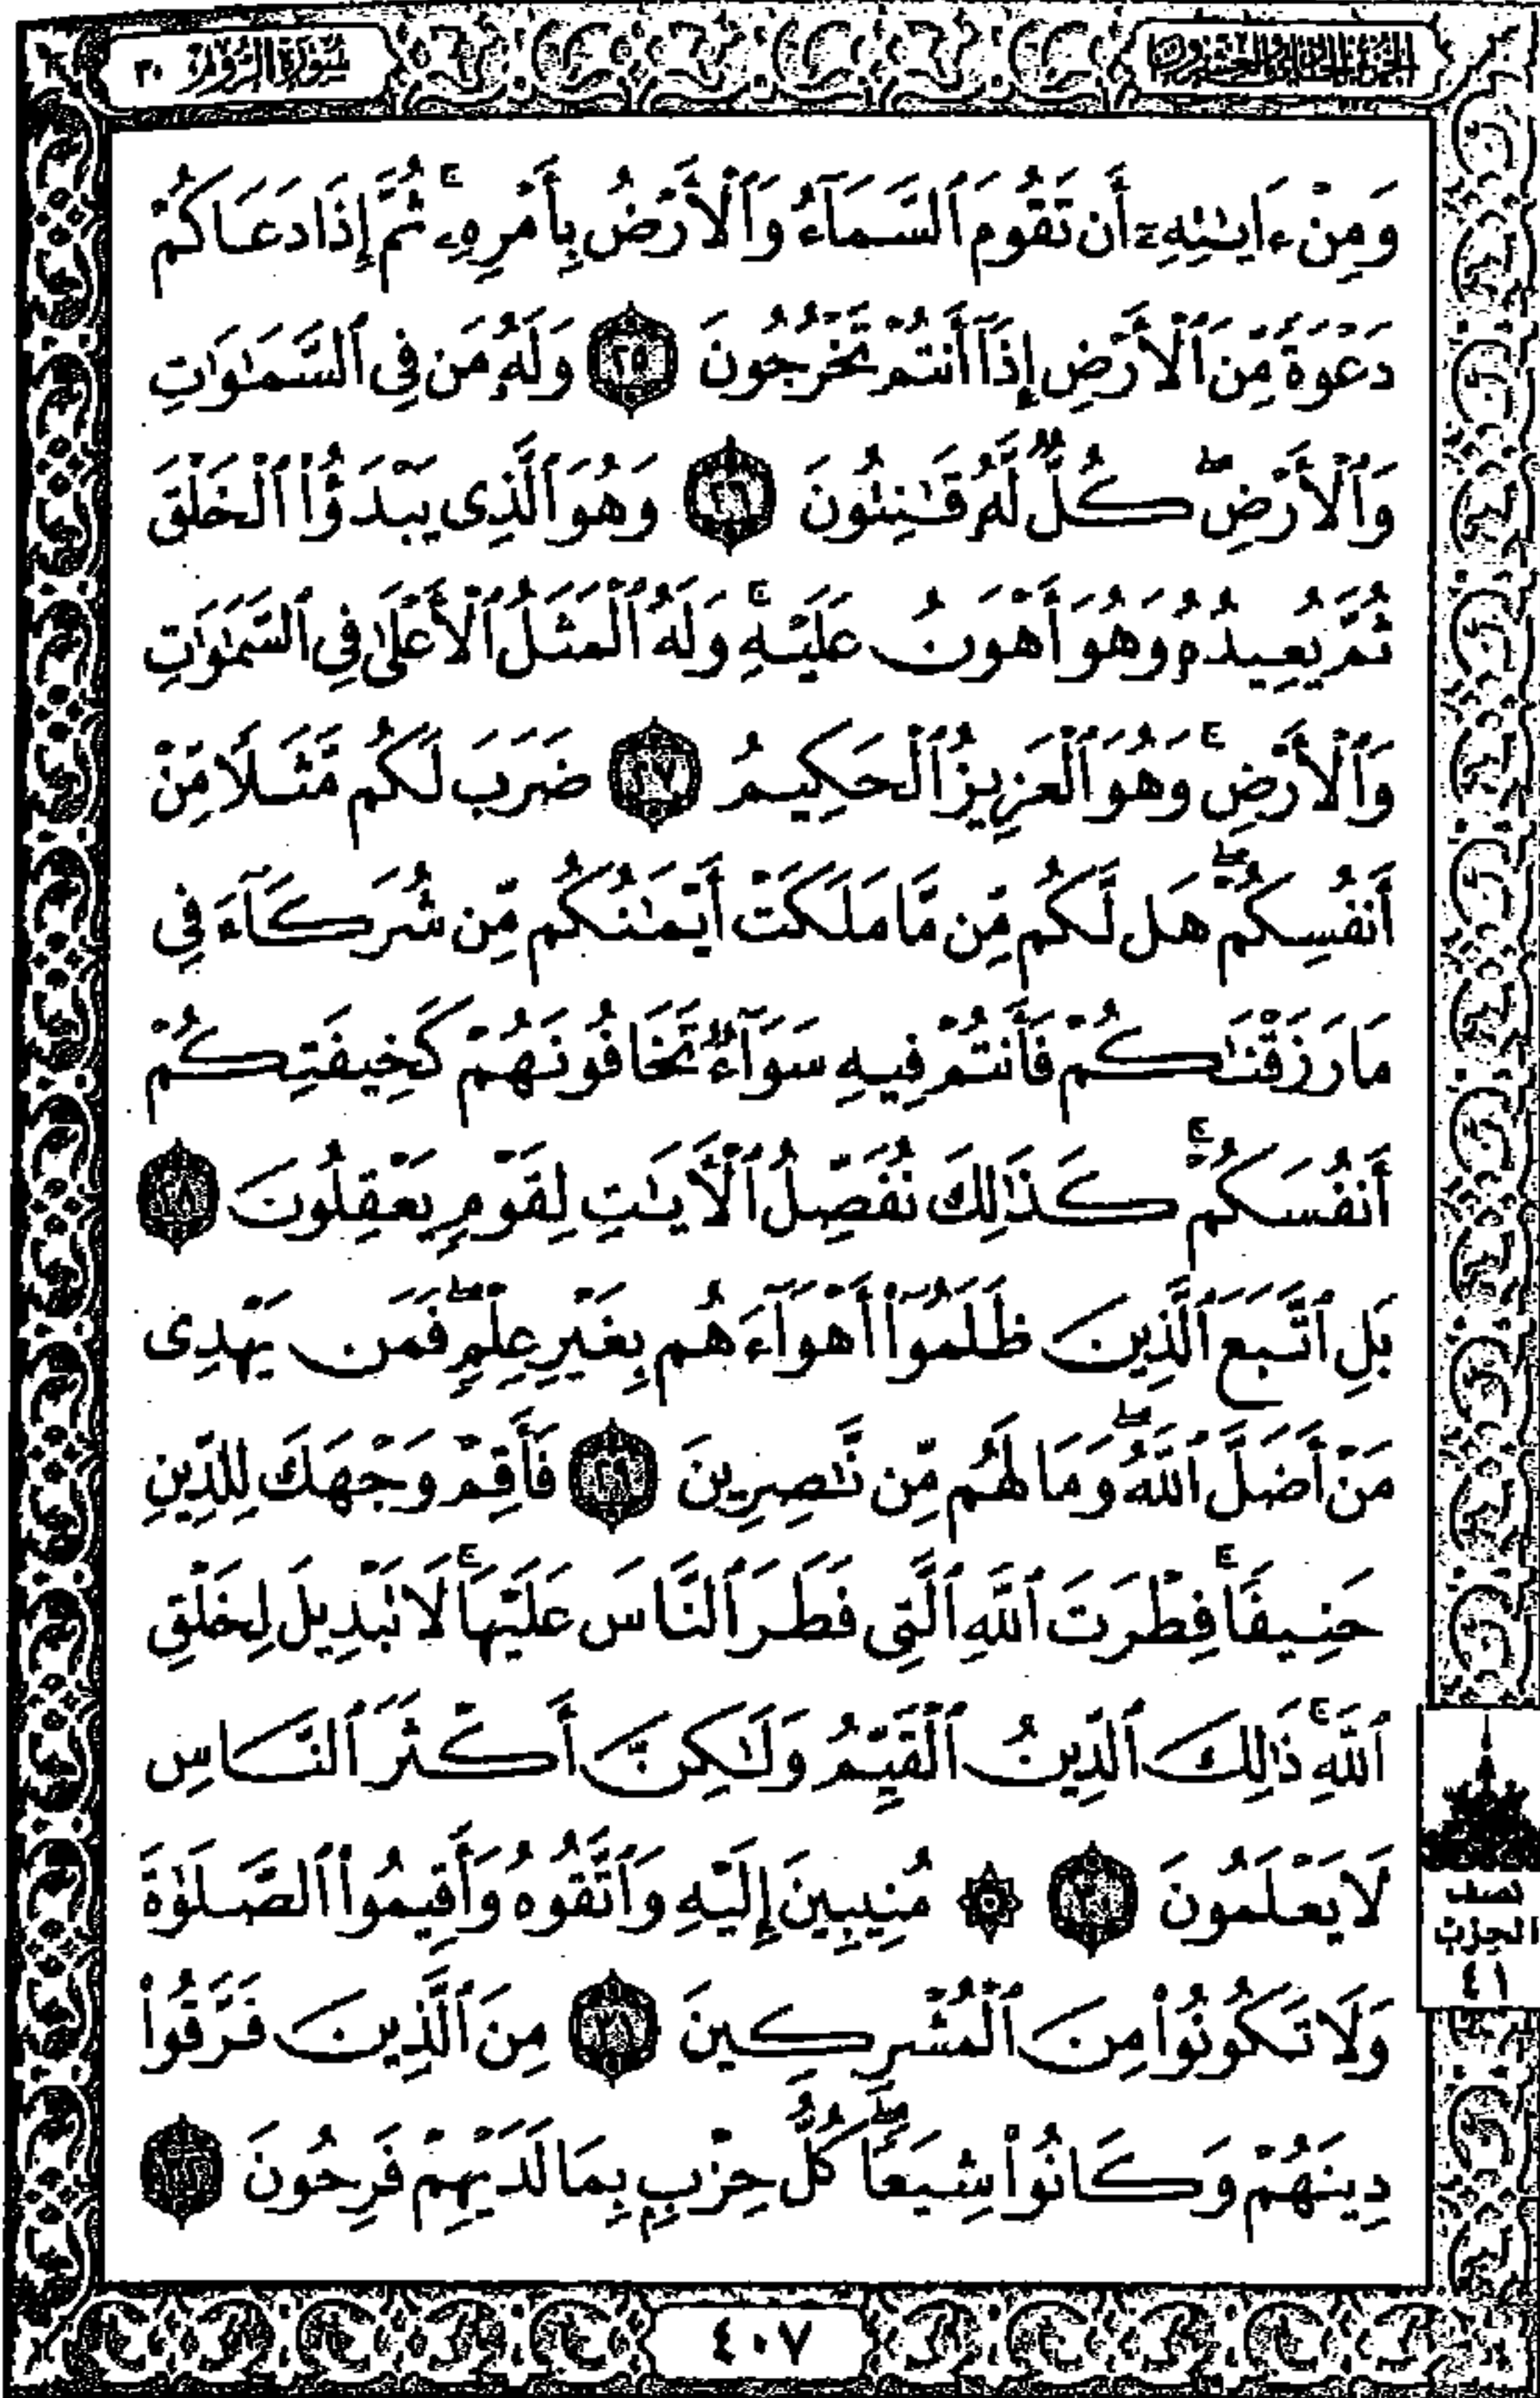 الجزء الحادي والعشرون
سورة الروم ٣٠
وَمِنْ ءَايَٰتِهِۦٓ أَن تَقُومَ ٱلسَّمَآءُ وَٱلْأَرْضُ بِأَمْرِهِۦ ۚ ثُمَّ إِذَا دَعَاكُمْ
دَعْوَةً مِّنَ ٱلْأَرْضِ إِذَآ أَنتُمْ تَخْرُجُونَ ٢٥ وَلَهُۥ مَن فِى ٱلسَّمَٰوَٰتِ
وَٱلْأَرْضِ ۖ كُلٌّ لَّهُۥ قَٰنِتُونَ ٢٦ وَهُوَ ٱلَّذِى يَبْدَؤُا۟ ٱلْخَلْقَ
ثُمَّ يُعِيدُهُۥ وَهُوَ أَهْوَنُ عَلَيْهِ ۚ وَلَهُ ٱلْمَثَلُ ٱلْأَعْلَىٰ فِى ٱلسَّمَٰوَٰتِ
وَٱلْأَرْضِ ۚ وَهُوَ ٱلْعَزِيزُ ٱلْحَكِيمُ ٢٧ ضَرَبَ لَكُم مَّثَلًا مِّنْ
أَنفُسِكُمْ ۖ هَل لَّكُم مِّن مَّا مَلَكَتْ أَيْمَٰنُكُم مِّن شُرَكَآءَ فِى
مَا رَزَقْنَٰكُمْ فَأَنتُمْ فِيهِ سَوَآءٌ تَخَافُونَهُمْ كَخِيفَتِكُمْ
أَنفُسَكُمْ ۚ كَذَٰلِكَ نُفَصِّلُ ٱلْءَايَٰتِ لِقَوْمٍ يَعْقِلُونَ ٢٨
بَلِ ٱتَّبَعَ ٱلَّذِينَ ظَلَمُوٓا۟ أَهْوَآءَهُم بِغَيْرِ عِلْمٍ ۖ فَمَن يَهْدِى
مَنْ أَضَلَّ ٱللَّهُ ۖ وَمَا لَهُم مِّن نَّٰصِرِينَ ٢٩ فَأَقِمْ وَجْهَكَ لِلدِّينِ
حَنِيفًا ۚ فِطْرَتَ ٱللَّهِ ٱلَّتِى فَطَرَ ٱلنَّاسَ عَلَيْهَا ۚ لَا تَبْدِيلَ لِخَلْقِ
ٱللَّهِ ۚ ذَٰلِكَ ٱلدِّينُ ٱلْقَيِّمُ وَلَٰكِنَّ أَكْثَرَ ٱلنَّاسِ
لَا يَعْلَمُونَ ٣٠ ۞ مُنِيبِينَ إِلَيْهِ وَٱتَّقُوهُ وَأَقِيمُوا۟ ٱلصَّلَوٰةَ
وَلَا تَكُونُوا۟ مِنَ ٱلْمُشْرِكِينَ ٣١ مِنَ ٱلَّذِينَ فَرَّقُوا۟
دِينَهُمْ وَكَانُوا۟ شِيَعًا ۖ كُلُّ حِزْبٍۭ بِمَا لَدَيْهِمْ فَرِحُونَ ٣٢
نصف
الحزب
٤١
٤٠٧